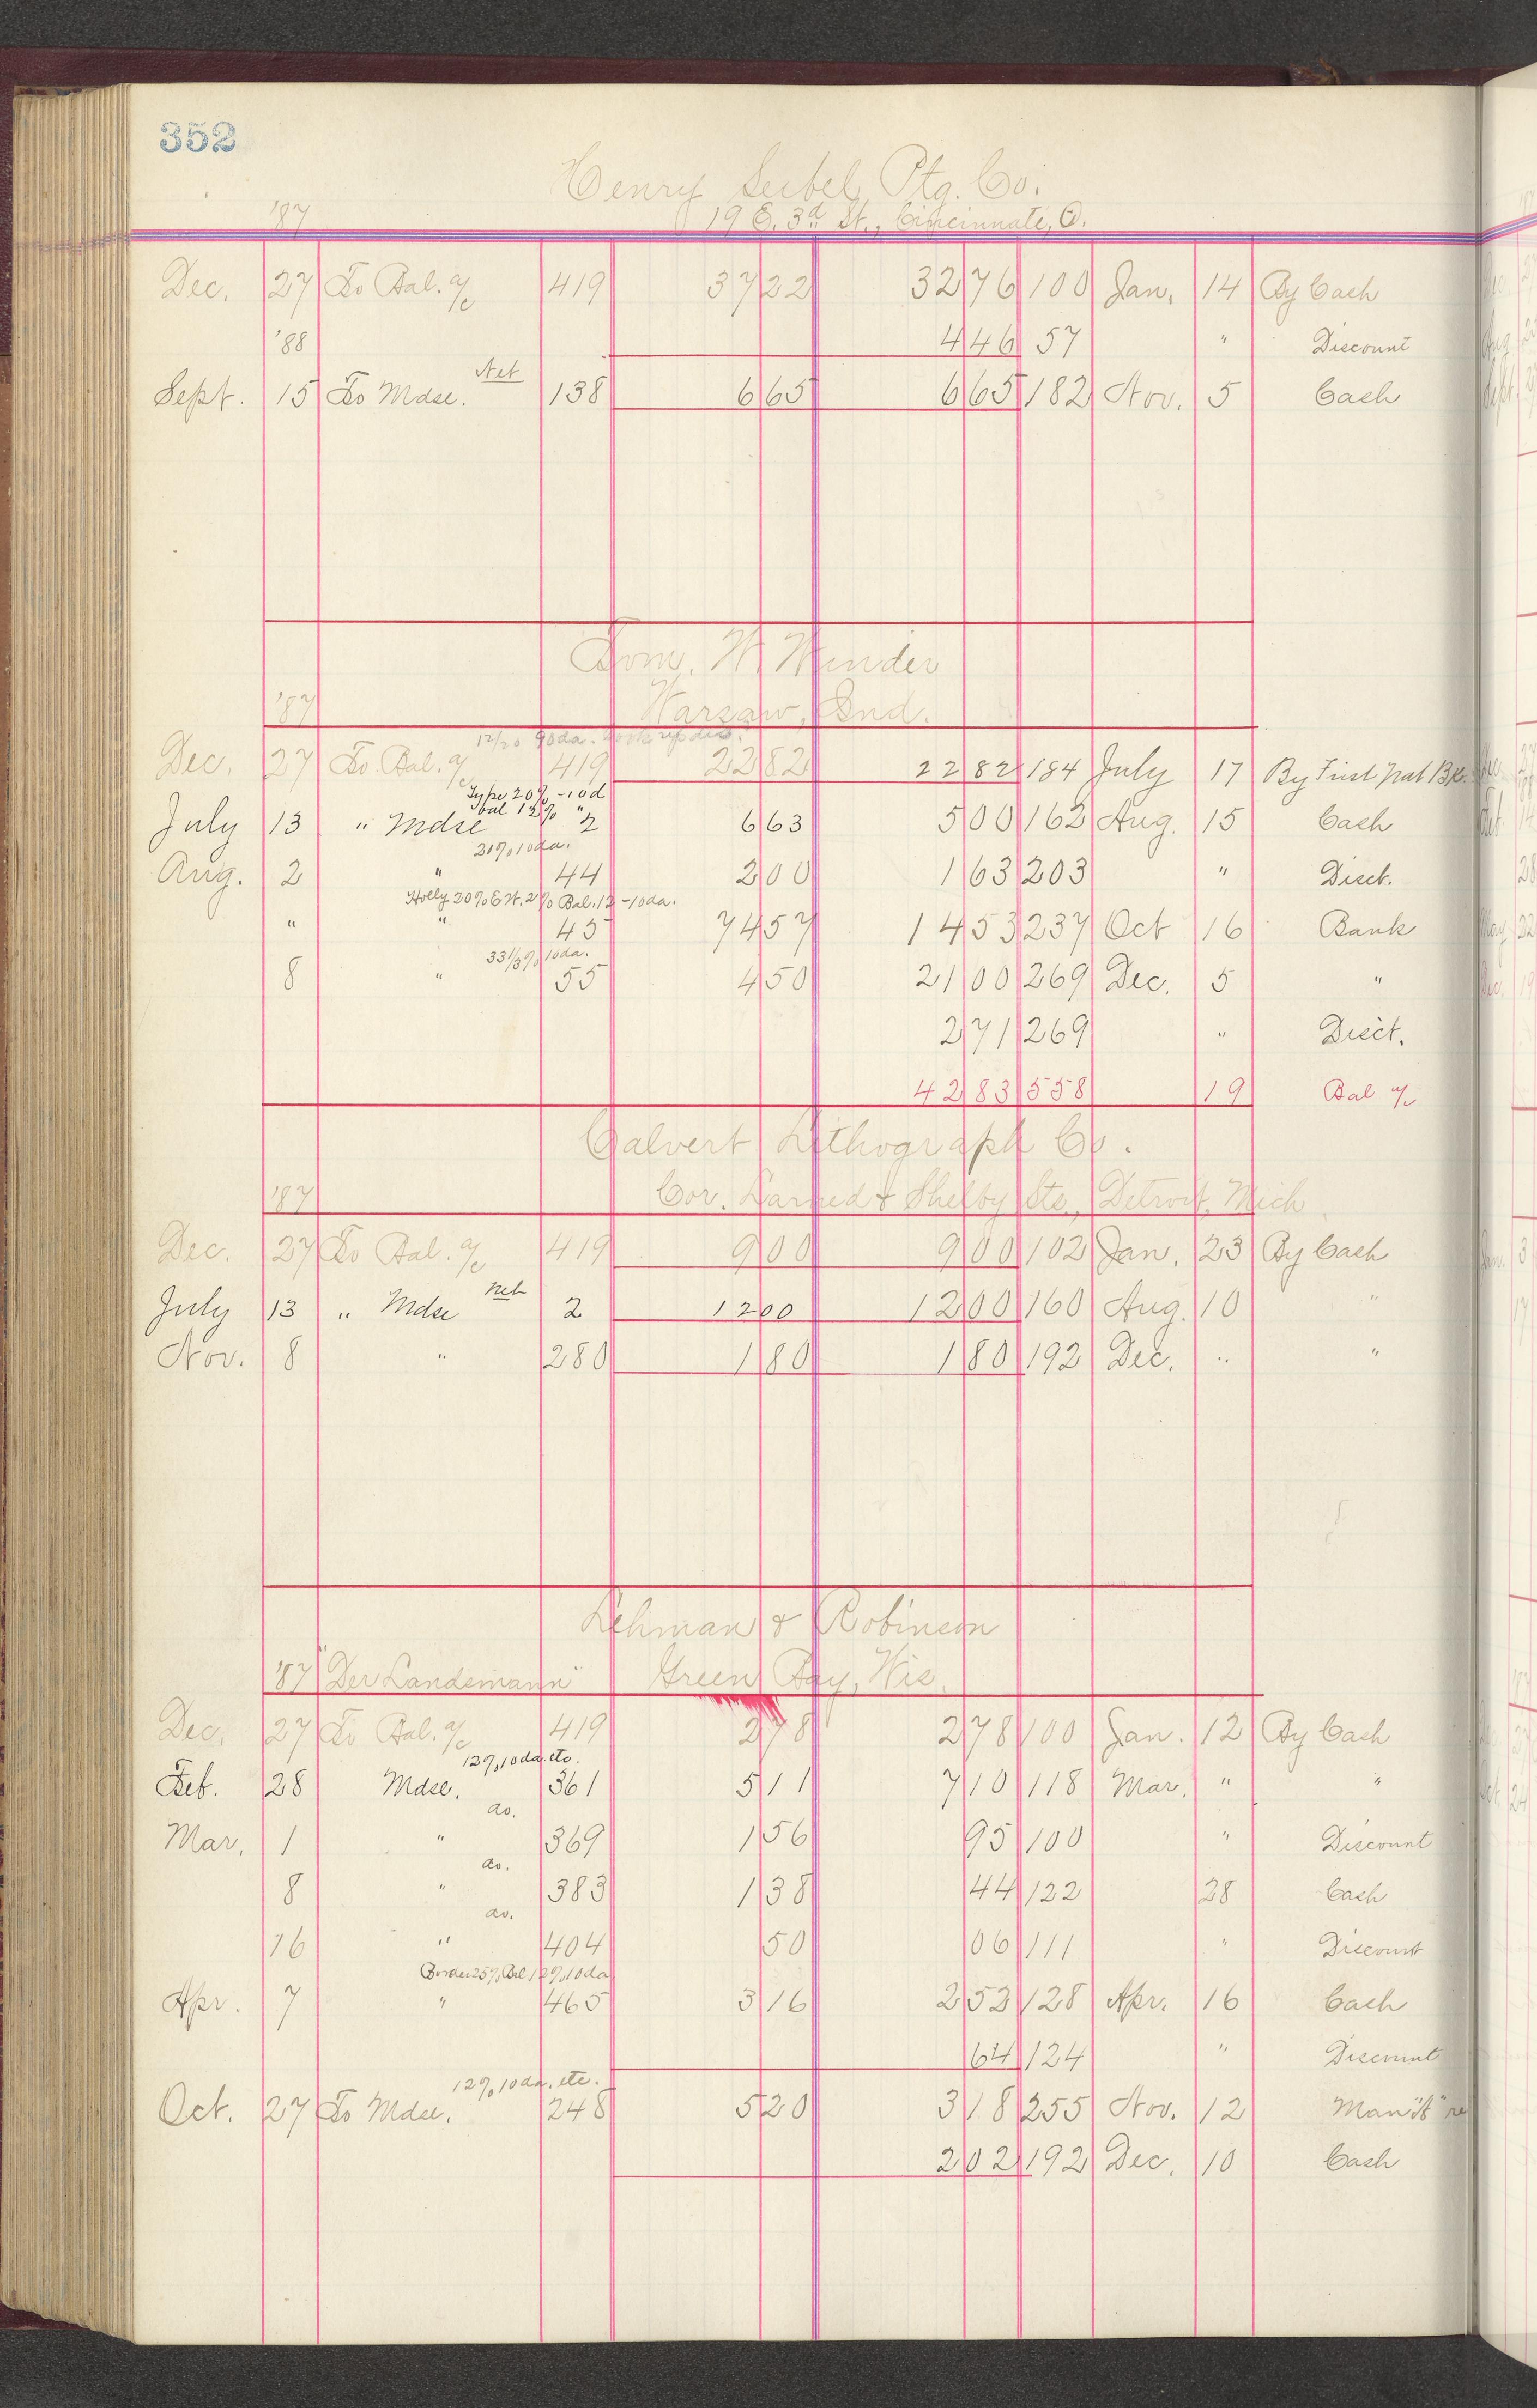 352
Henry Seibel Ptg. Co.
'87 19 E. 3d St., Cincinnati, O.
Dec. 27 To Bal. a/c 419 37 22 32 76 100 Jan. 14 By Cash
'88 4 46 57 " Discount
Net
Sept. 15 To Mdse. 138 6 65 6 65 182 Nov. 5 Cash
Dom. W. Winder
'87 Warsaw, Ind.
Dec. 27 To Bal. a/c 419 22 82 22 82 184 July 17 By First Nat Bk.
Type 20% - 10d
bal 12% "
July 13 " Mdse 2 6 63 5 00 162 Aug. 15 Cash
20% 10da.
Aug. 2 " 44 2 00 1 63 203 " Disct.
Holly 20% E.W. 2% Bal. 12 - 10da.
" " 45 74 57 14 53 237 Oct 16 Bank
33 1/3% 10da.
8 " 55 4 50 21 00 269 Dec. 5 "
2 71 269 " Disct.
42 83 558 19 Bal a/c
Calvert Lithograph Co.
'87 Cor. Larned & Shelby Sts., Detroit, Mich
Dec. 27 To Bal. a/c 419 9 00 9 00 102 Jan. 23 By Cash
Net
July 13 " Mdse 2 12 00 12 00 160 Aug. 10 "
Nov. 8 " 280 1 80 1 80 192 Dec. " "
Lehman & Robinson
'87 "Der Landsmann" Green Bay, Wis.
Dec. 27 To Bal. a/c 419 2 78 2 78 100 Jan. 12 By Cash
12% 10da. etc.
Feb. 28 Mdse. 361 5 11 7 10 118 Mar. " "
do.
Mar. 1 " 369 1 56 95 100 " Discount
do.
8 " 383 1 38 44 122 28 Cash
do.
16 " 404 50 06 111 " Discount
Border 25% Bal. 12% 10da
Apr. 7 " 465 3 16 2 52 128 Apr. 16 Cash
64 124 " Discount
12% 10da. etc.
Oct. 27 To Mdse. 248 5 20 3 18 255 Nov. 12
2 02 192 Dec. 10 Cash